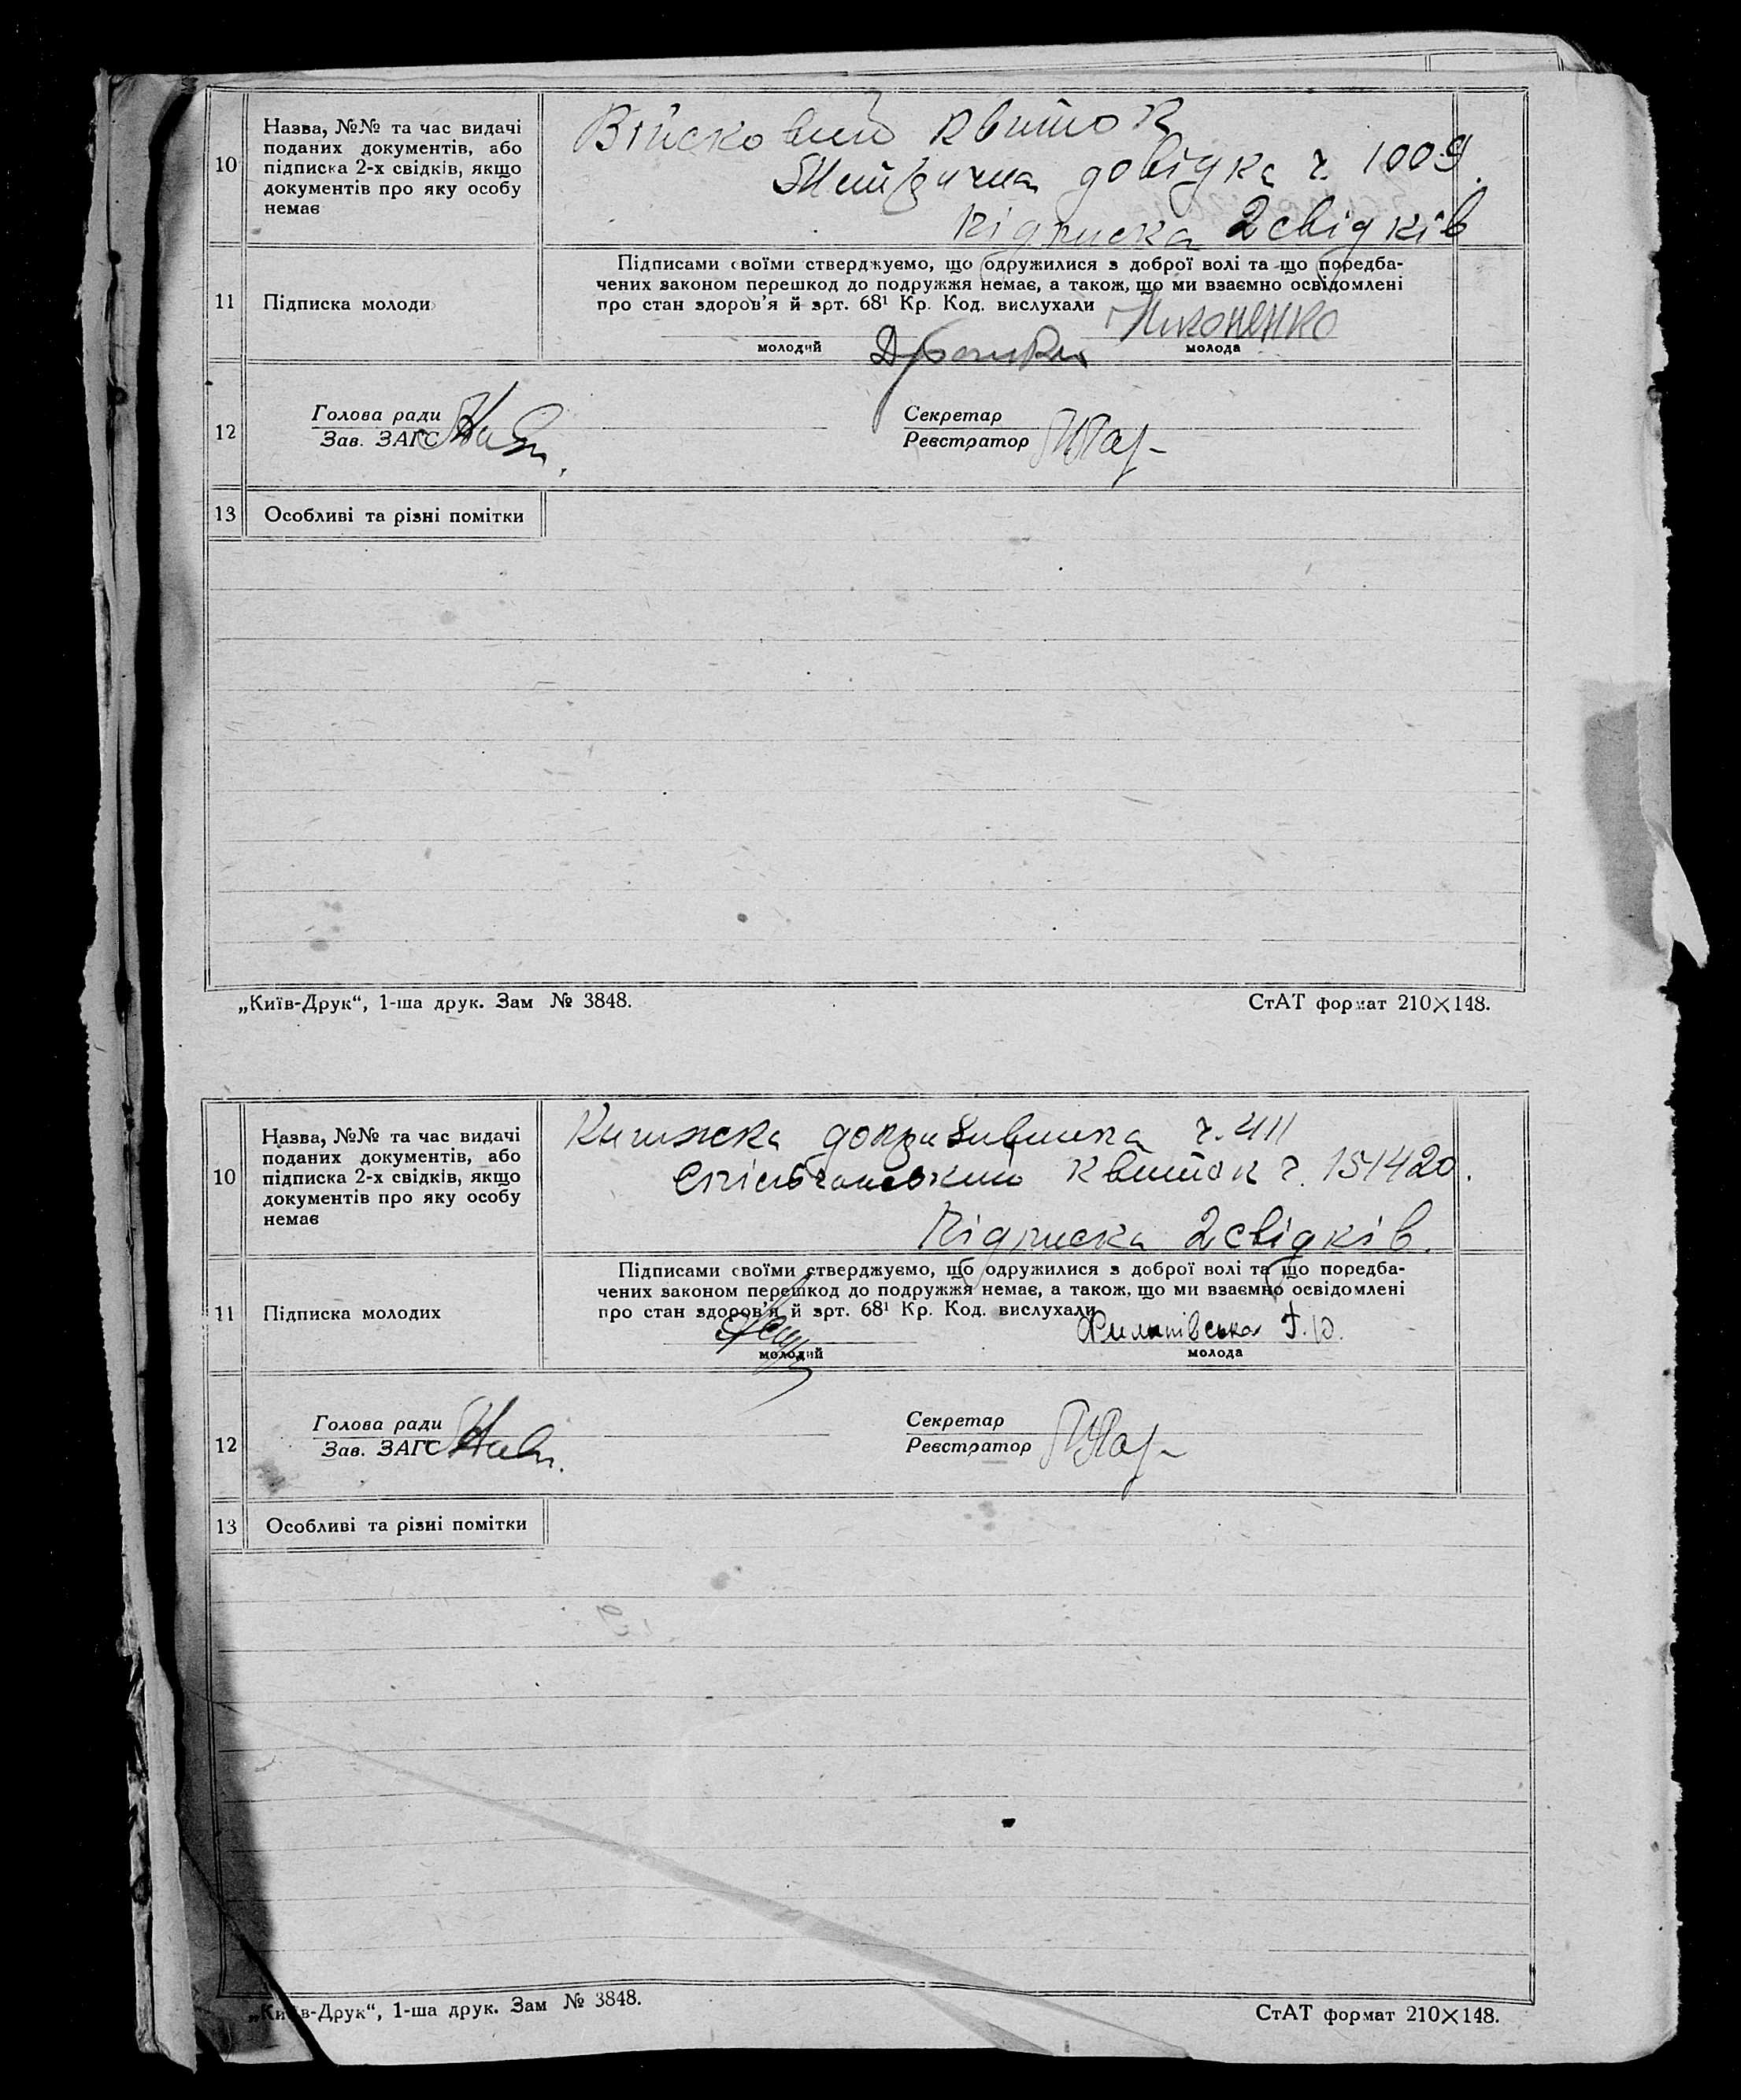 10
Назва, №№ та час видачі
поданих документів, або
підписка 2-х свідків, якщо
документів про яку особу
немає
Війсковий квиток
Метрична довідка ч. 1009.
Підписка 2 свідків
11
Підписка молоди
Підписами своїми стверджуємо, що одружилися з доброї волі та що поредба-
чених законом перешкод до подружжя немає, а також, що ми взаємно освідомлені
про стан здоров'я й зрт. 68¹ Кр. Код. вислухали
Никоненко
молодий
молода
12
Голова ради
Зав. ЗАГС
Секретар
Реєстратор
13
Особливі та різні помітки
„Київ-Друк“, 1-ша друк. Зам № 3848.
СтАТ формат 210×148.
10
Назва, №№ та час видачі
поданих документів, або
підписка 2-х свідків, якщо
документів про яку особу
немає
Книжка допризивника ч. 411
Спісочанський квиток ч. 151420.
Підписка 2 свідків.
11
Підписка молодих
Підписами своїми стверджуємо, що одружилися з доброї волі та що поредба-
чених законом перешкод до подружжя немає, а також, що ми взаємно освідомлені
про стан здоров'я й зрт. 68¹ Кр. Код. вислухали
Филипівська
молодий
молода
12
Голова ради
Зав. ЗАГС
Секретар
Реєстратор
13
Особливі та різні помітки
„Київ-Друк“, 1-ша друк. Зам № 3848.
СтАТ формат 210×148.